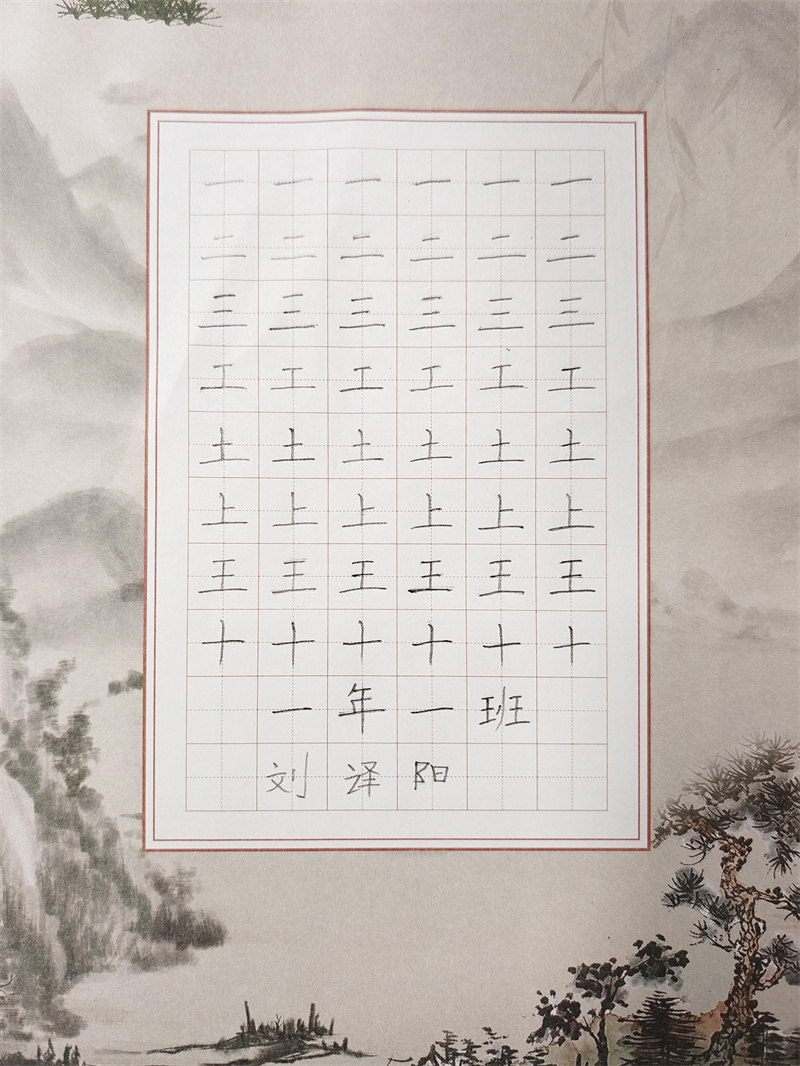 一 一 一 一 一 一
二 二 二 二 二 二
三 三 三 三 三 三
工 工 工 工 工 工
土 土 土 土 土 土
上 上 上 上 上 上
王 王 王 王 王 王
十 十 十 十 十 十
一 年 一 班
刘 译 阳